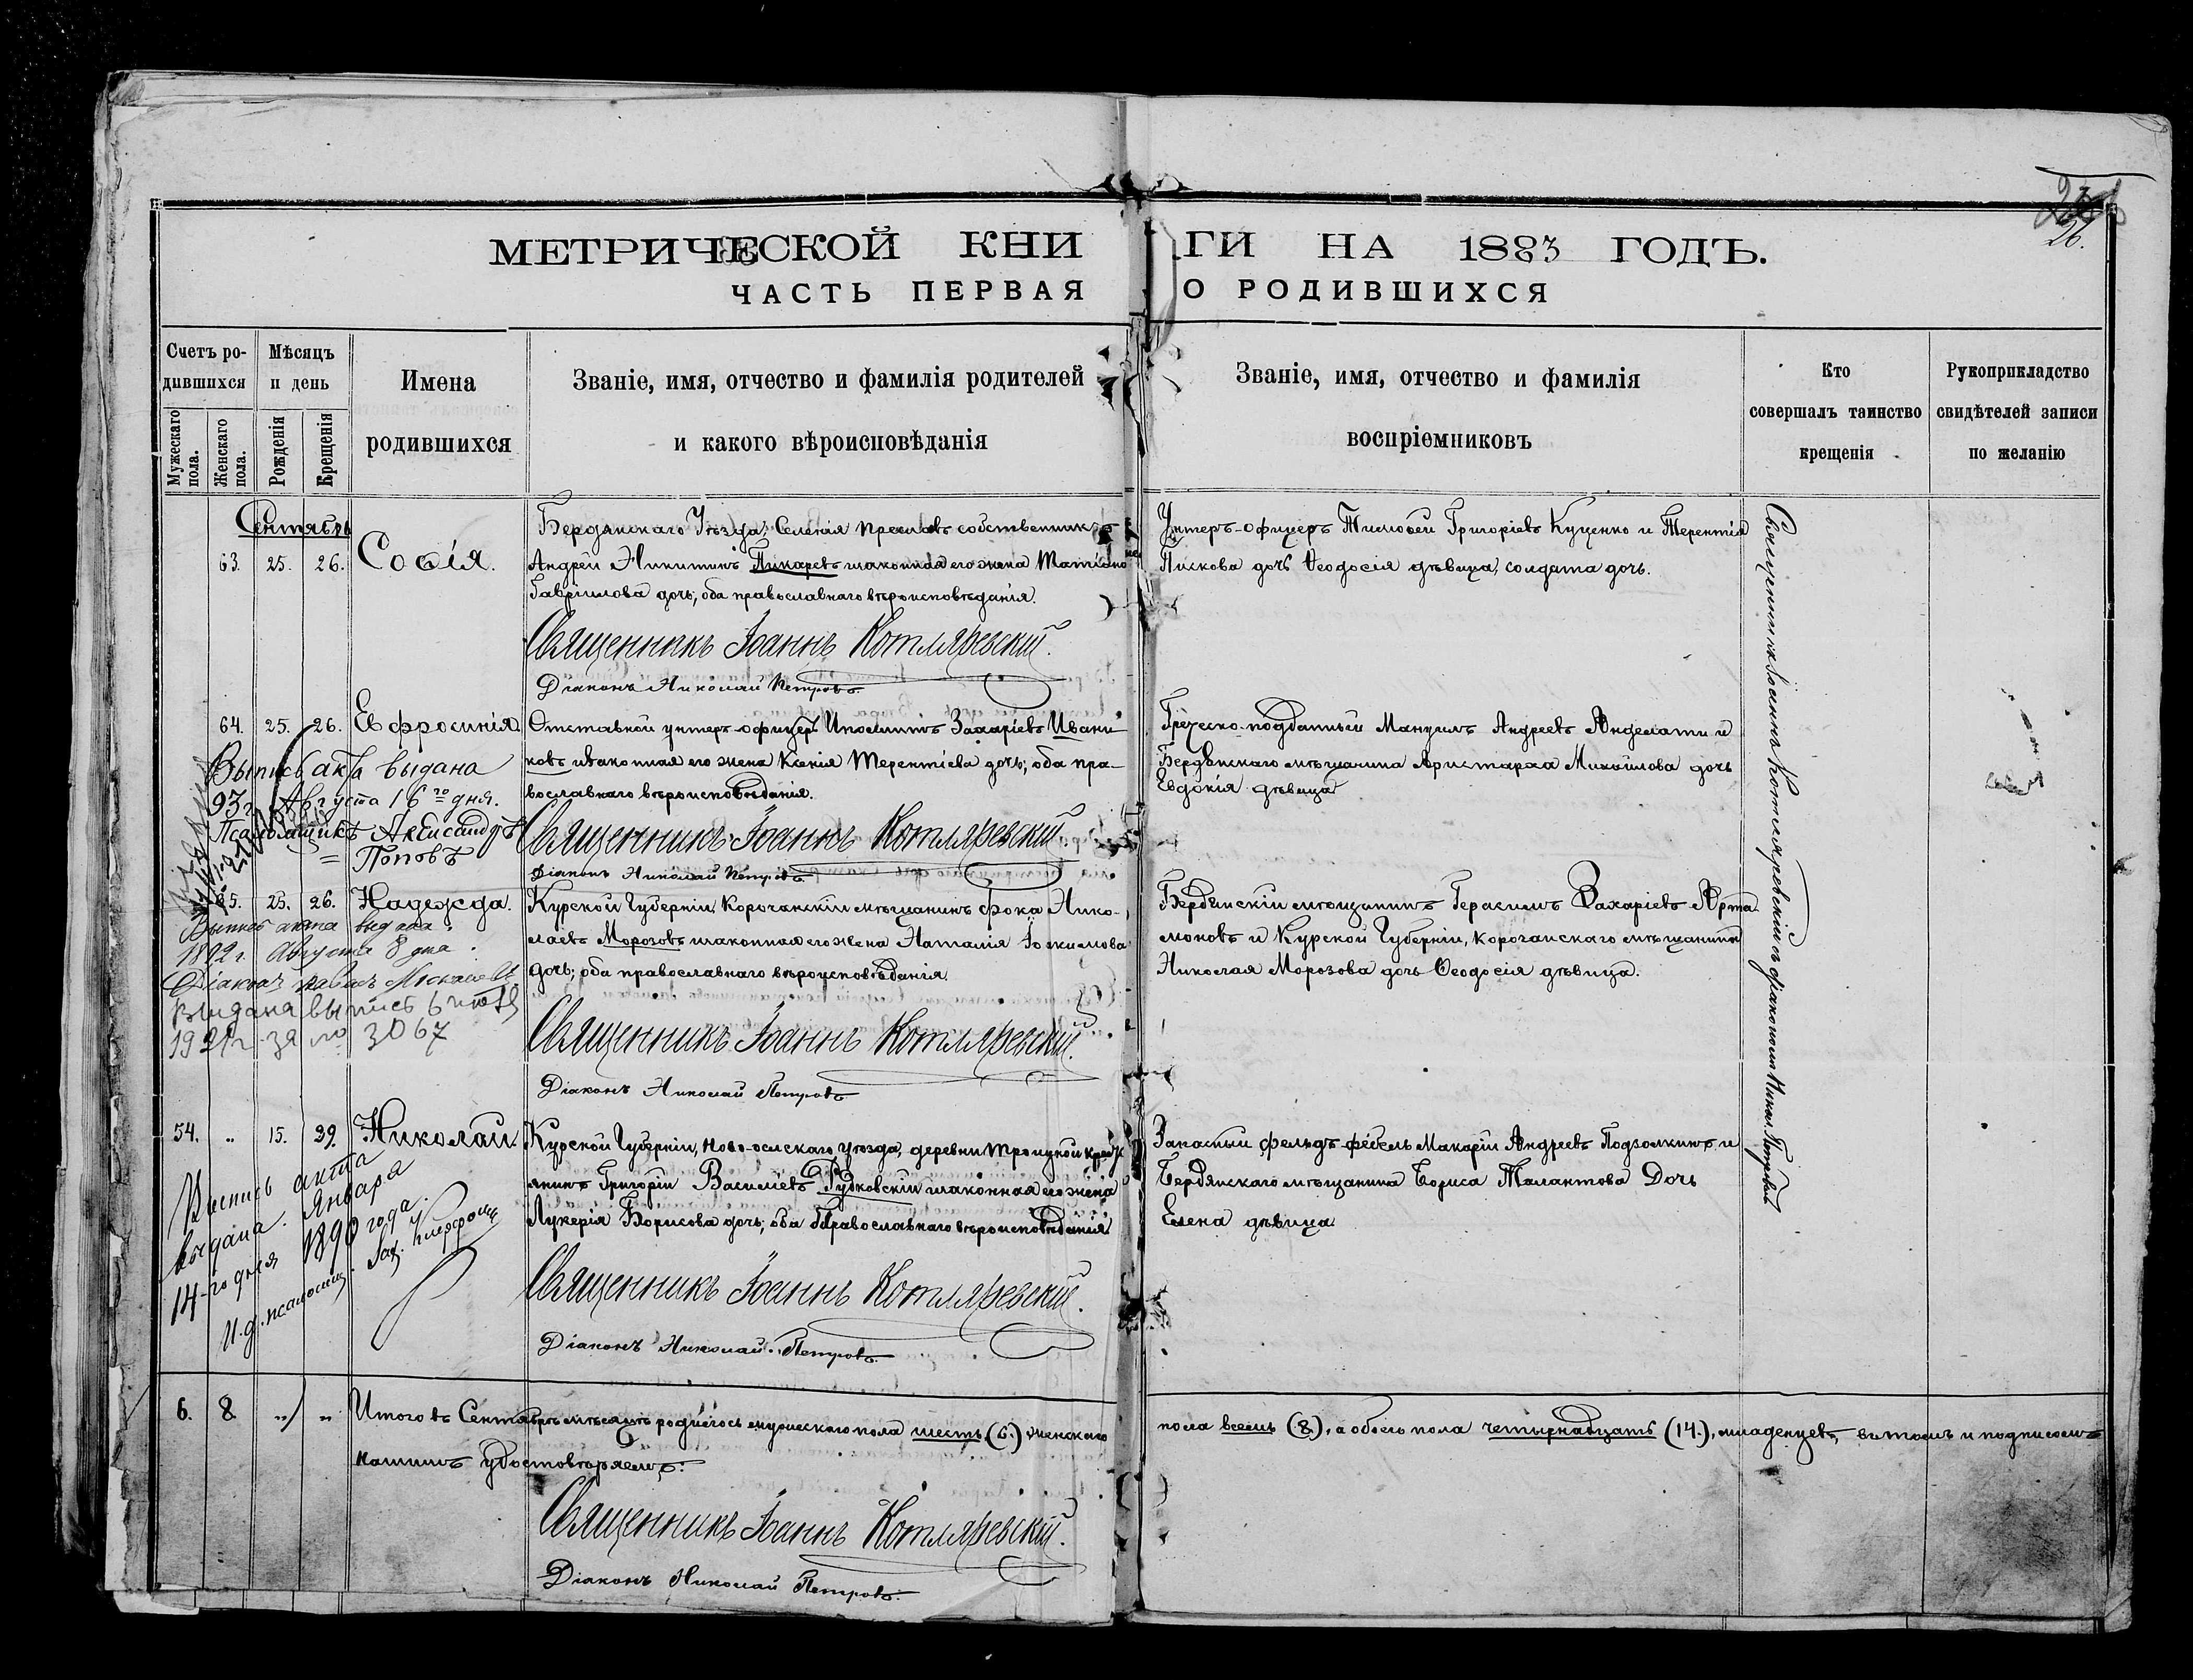 26.
МЕТРИЧЕСКОЙ КНИГИ НА 1883 ГОДЪ.
ЧАСТЬ ПЕРВАЯ О РОДИВШИХСЯ
Счетъ родившихся
Мужескаго пола.
Женскаго пола.
Мѣсяцъ и день
Рожденія
Крещенія
Имена родившихся
Званіе, имя, отчество и фамилія родителей
и какого вѣроисповѣданія
Званіе, имя, отчество и фамилія
воспріемниковъ
Кто
совершалъ таинство
крещенія
Рукоприкладство
свидѣтелей записи
по желанію
Сентябрь
63. 25. 26. Софія.
Бердянскаго Уѣзда, Селенія Преславъ собственникъ
Андрей Никитинъ Пикаревъ и законная его жена Татіана
Гавріилова дочь; оба православнаго вѣроисповѣданія.
Священникъ Іоаннъ Котляревскій.
Діаконъ Николай Петровъ
Унтеръ-офицеръ Тимофей Григоріевъ Куценко и Терентія
Пискова дочь Ѳеодосія дѣвица, солдата дочь.
Священникъ Іоаннъ Котляревскій съ діакономъ Никол. Петровымъ
64. 25. 26. Евфросинія
Отставной унтеръ-офицеръ Иполитъ Захаріевъ Ивани-
ковъ и законная его жена Ксенія Терентіева дочь; оба пра-
вославнаго вѣроисповѣданія.
Священникъ Іоаннъ Котляревскій.
Діаконъ Николай Петровъ
Греческо-подданный Мануилъ Андреевъ Анделати и
Бердянскаго мѣщанина Аристарха Михаилова дочь
Евдокія дѣвица
Выпись акта выдана
93 г. Августа 16го дня.
Псаломщикъ Александръ
Поповъ
65. 25. 26. Надежда.
Курской Губерніи, Корочанскій мѣщанинъ Фока Нико-
лаевъ Морозовъ и законная его жена Наталія Іоакимова
дочь; оба православнаго вѣроисповѣданія.
Священникъ Іоаннъ Котляревскій.
Діаконъ Николай Петровъ
Бердянскій мѣщанинъ Герасимъ Захаріевъ Арта-
моновъ и Курской Губерніи, Корочанскаго мѣщанина
Николая Морозова дочь Ѳеодосія дѣвица.
Выпись акта выдана
1892 г. Августа 8 дня.
Діаконъ Павелъ
Выдана выпись 6
за № 3067
54. „ 15. 29. Николай.
Курской Губерніи, Ново-оскскаго уѣзда, деревни Троицкой крест-
янинъ Григорій Василіевъ Рудковскій и законная его жена
Лукерія Борисова дочь; оба Православнаго вѣроисповѣданія
Священникъ Іоаннъ Котляревскій.
Діаконъ Николай Петровъ
Запасный фельдъ-фебель Макарій Андреевъ Подзолкинъ и
Бердянскаго мѣщанина Бориса Талантова Дочь
Елена дѣвица
Выпись акта
выдана Января
14-го дня 1890 года.
И. д. псаломщ.
6. 8 „ „ Итого въ Сентябрѣ мѣсяцѣ родилось мужескаго пола шесть (6.) женскаго
пола восемь (8), а обоего пола четырнадцать (14.), младенцевъ, въ томъ и подписомъ
нашимъ удостовѣряемъ:
Священникъ Іоаннъ Котляревскій.
Діаконъ Николай Петровъ.